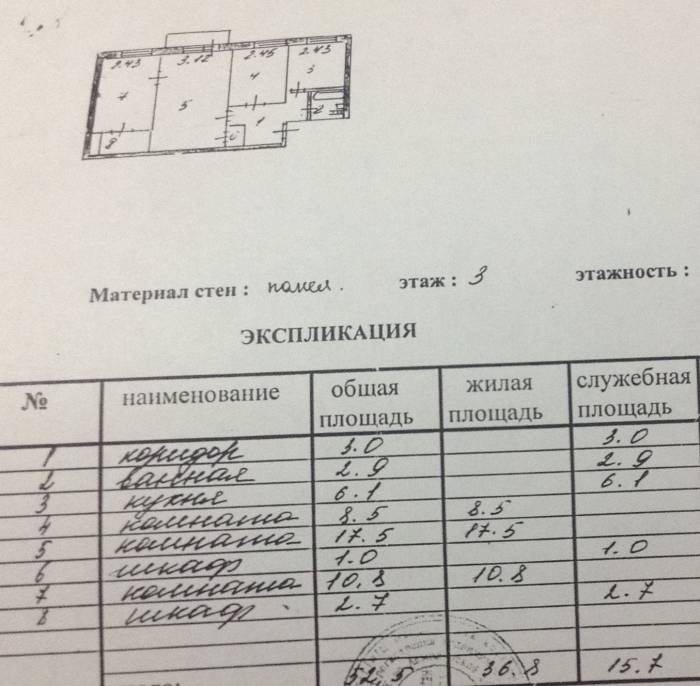 2.43 3.12 2.45 2.43
7 5 4 3
8 6 1 2
Материал стен : панел. этаж : 3 этажность :
ЭКСПЛИКАЦИЯ
№ наименование общая площадь жилая площадь служебная площадь
1 коридор 3.0 3.0
2 ванная 2.9 2.9
3 кухня 6.1 6.1
4 комната 8.5 8.5
5 комната 17.5 17.5
6 шкаф 1.0 1.0
7 комната 10.8 10.8
8 шкаф 2.7 2.7
52.5 36.8 15.7